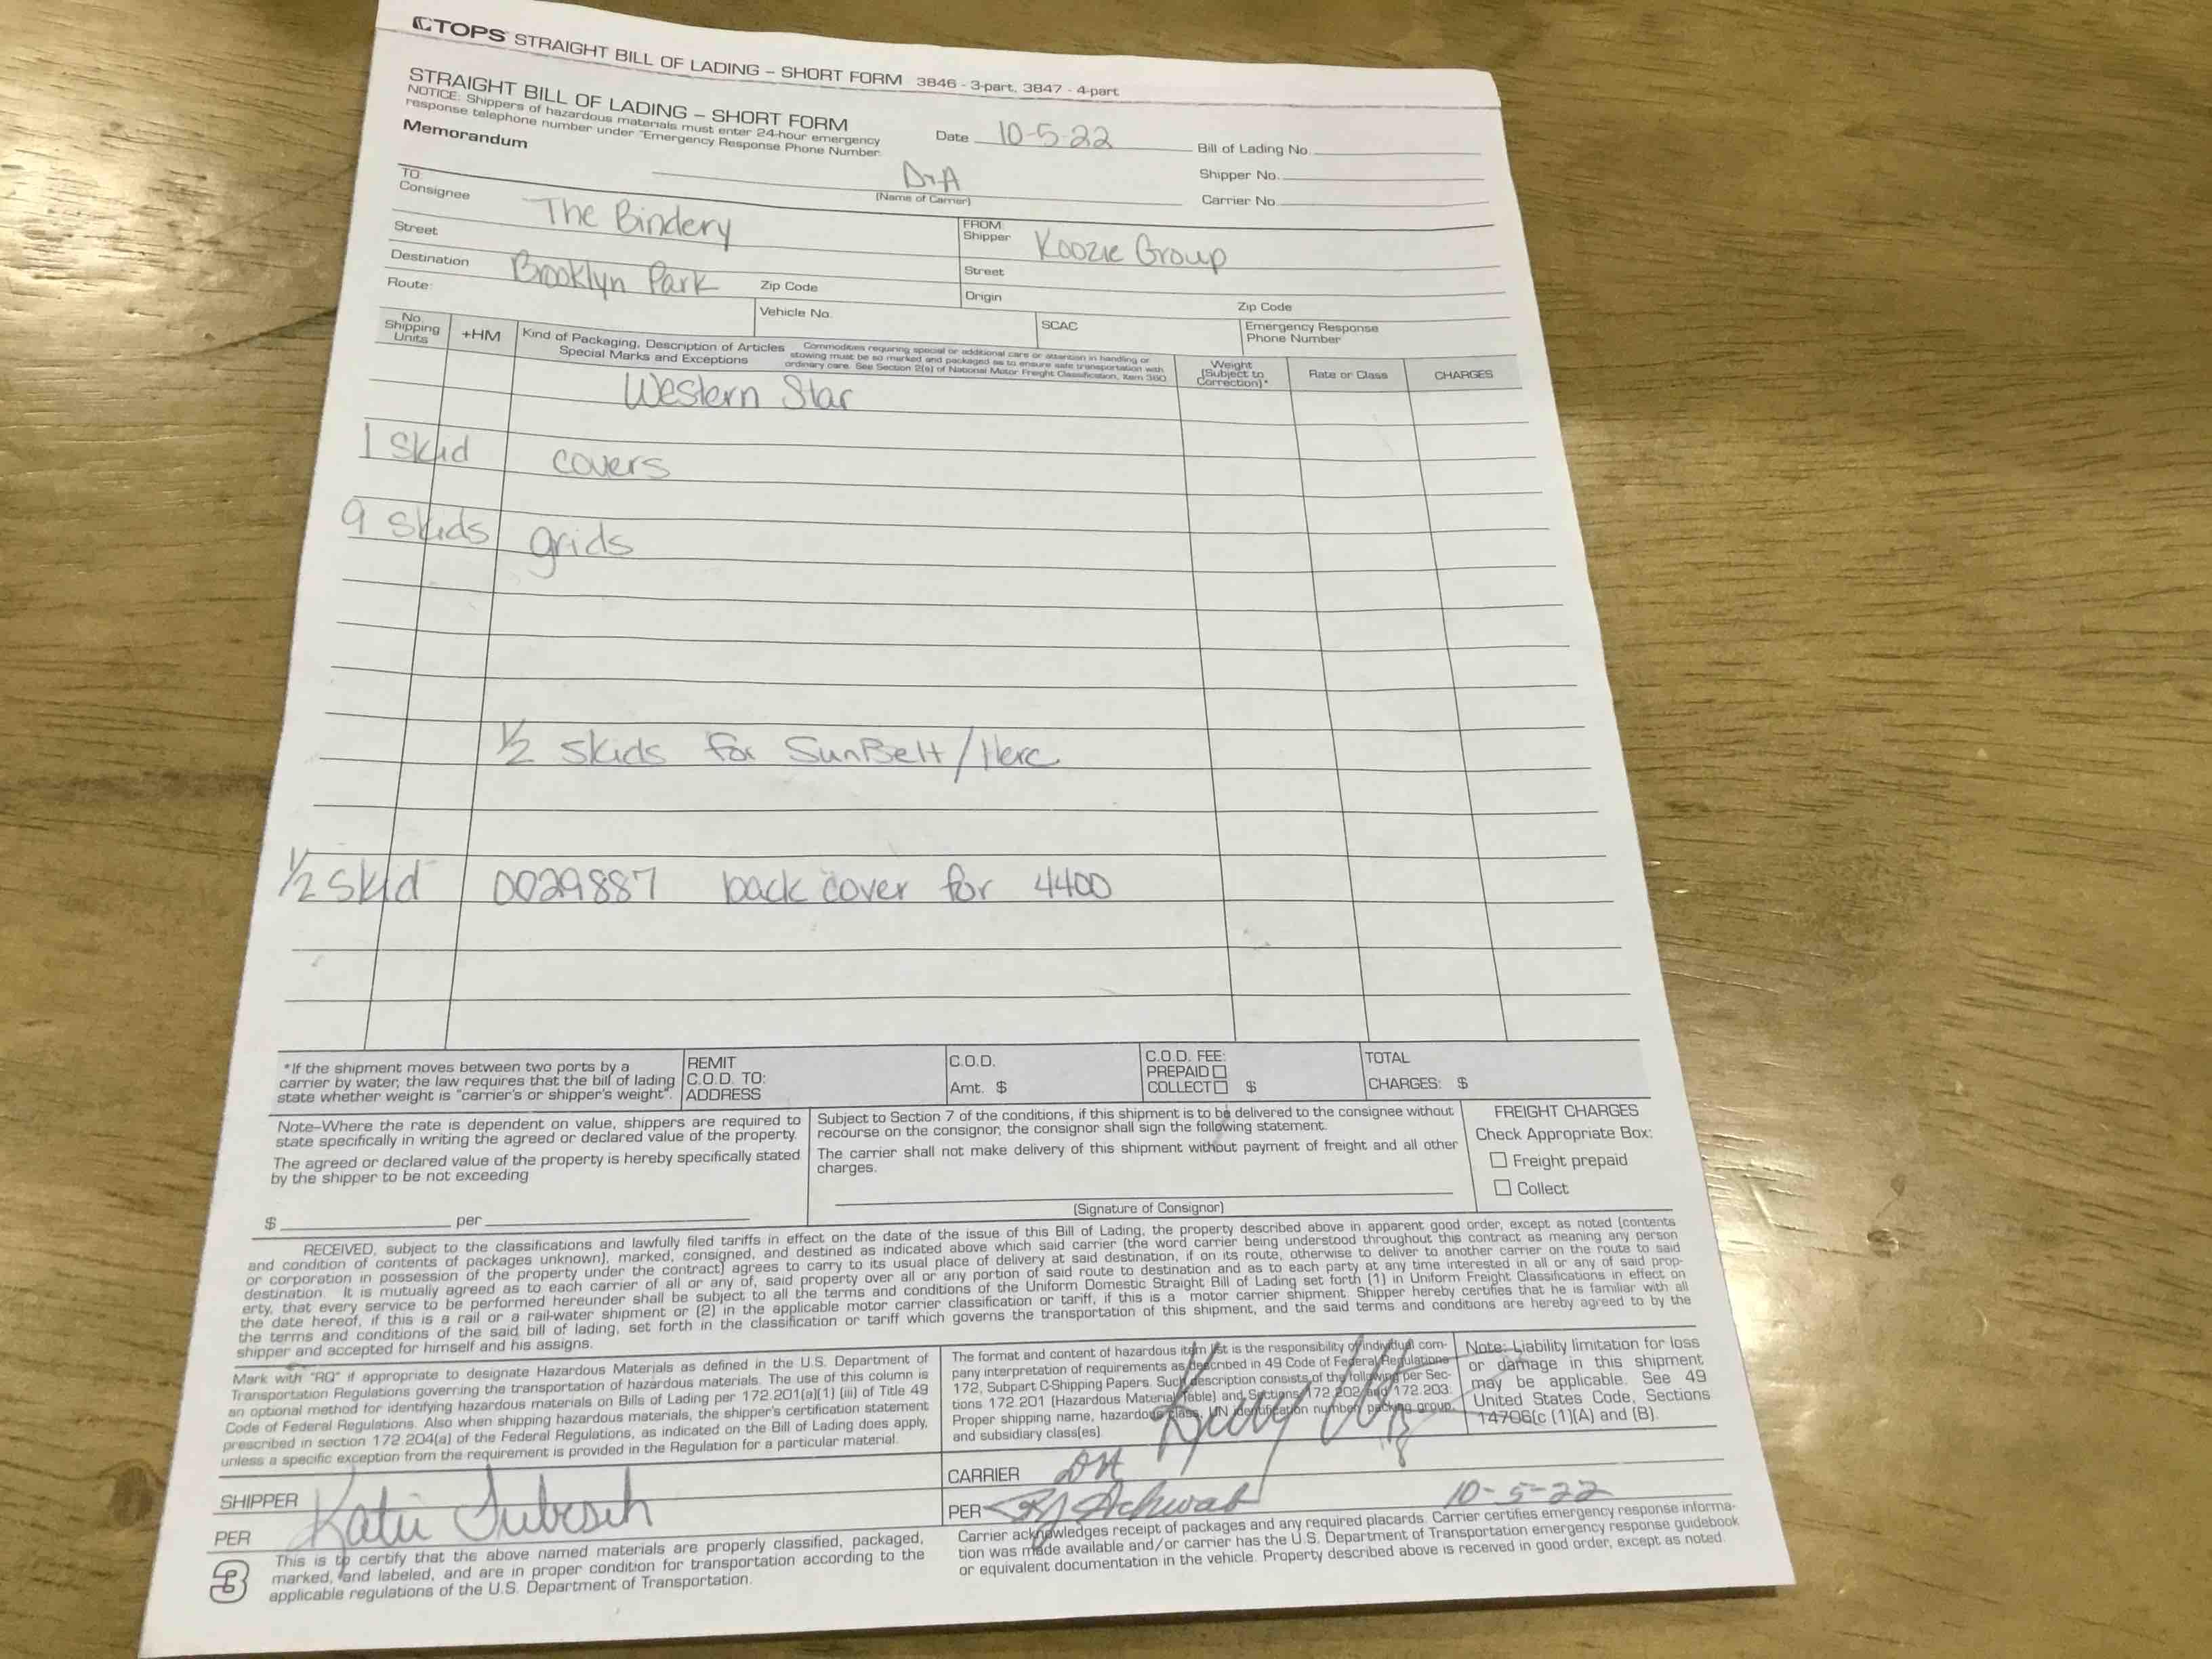 TOPS STRAIGHT BILL OF LADING – SHORT FORM 3846 - 3-part, 3847 - 4-part
STRAIGHT BILL OF LADING – SHORT FORM
NOTICE: Shippers of hazardous materials must enter 24-hour emergency
response telephone number under "Emergency Response Phone Number.
Memorandum
Date 10-5-22
Bill of Lading No.
Shipper No.
Carrier No.
D+A
(Name of Carrier)
TO:
Consignee The Bindery
Street
Destination Brooklyn Park Zip Code
Route:
Vehicle No.
FROM:
Shipper Koozie Group
Street
Origin Zip Code
SCAC
Emergency Response
Phone Number
No.
Shipping
Units
+HM
Kind of Packaging, Description of Articles
Special Marks and Exceptions
Commodities requiring special or additional care or attention in handling or
stowing must be so marked and packaged as to ensure safe transportation with
ordinary care. See Section 2(e) of National Motor Freight Classification, Item 360
Weight
(Subject to
Correction)*
Rate or Class
CHARGES
Western Star
1 skid covers
9 skids grids
1/2 skids for SunBelt/Herc
1/2 skid 0029887 back cover for 4400
*If the shipment moves between two ports by a
carrier by water, the law requires that the bill of lading
state whether weight is "carrier's or shipper's weight".
REMIT
C.O.D. TO:
ADDRESS
C.O.D.
Amt. $
C.O.D. FEE:
PREPAID
COLLECT $
TOTAL
CHARGES: $
Note–Where the rate is dependent on value, shippers are required to
state specifically in writing the agreed or declared value of the property.
The agreed or declared value of the property is hereby specifically stated
by the shipper to be not exceeding
$ per
Subject to Section 7 of the conditions, if this shipment is to be delivered to the consignee without
recourse on the consignor, the consignor shall sign the following statement.
The carrier shall not make delivery of this shipment without payment of freight and all other
charges.
(Signature of Consignor)
FREIGHT CHARGES
Check Appropriate Box:
Freight prepaid
Collect
RECEIVED, subject to the classifications and lawfully filed tariffs in effect on the date of the issue of this Bill of Lading, the property described above in apparent good order, except as noted (contents
and condition of contents of packages unknown), marked, consigned, and destined as indicated above which said carrier (the word carrier being understood throughout this contract as meaning any person
or corporation in possession of the property under the contract) agrees to carry to its usual place of delivery at said destination, if on its route, otherwise to deliver to another carrier on the route to said
destination. It is mutually agreed as to each carrier of all or any of, said property over all or any portion of said route to destination and as to each party at any time interested in all or any of said prop-
erty, that every service to be performed hereunder shall be subject to all the terms and conditions of the Uniform Domestic Straight Bill of Lading set forth (1) in Uniform Freight Classifications in effect on
the date hereof, if this is a rail or a rail-water shipment or (2) in the applicable motor carrier classification or tariff, if this is a motor carrier shipment. Shipper hereby certifies that he is familiar with all
the terms and conditions of the said bill of lading, set forth in the classification or tariff which governs the transportation of this shipment, and the said terms and conditions are hereby agreed to by the
shipper and accepted for himself and his assigns.
Mark with "RQ" if appropriate to designate Hazardous Materials as defined in the U.S. Department of
Transportation Regulations governing the transportation of hazardous materials. The use of this column is
an optional method for identifying hazardous materials on Bills of Lading per 172.201(a)(1) (iii) of Title 49
Code of Federal Regulations. Also when shipping hazardous materials, the shipper's certification statement
prescribed in section 172.204(a) of the Federal Regulations, as indicated on the Bill of Lading does apply,
unless a specific exception from the requirement is provided in the Regulation for a particular material.
The format and content of hazardous item list is the responsibility of individual com-
pany interpretation of requirements as described in 49 Code of Federal Regulations
172, Subpart C-Shipping Papers. Such description consists of the following per Sec-
tions 172.201 (Hazardous Material Table) and Sections 172.202 and 172.203.
Proper shipping name, hazardous class, UN identification number, packing group,
and subsidiary class(es)
Note: Liability limitation for loss
or damage in this shipment
may be applicable. See 49
United States Code, Sections
14706(c (1)(A) and (B).
Kelly
SHIPPER
PER Katie
CARRIER DA
PER RJ Schwab 10-5-22
3
This is to certify that the above named materials are properly classified, packaged,
marked, and labeled, and are in proper condition for transportation according to the
applicable regulations of the U.S. Department of Transportation.
Carrier acknowledges receipt of packages and any required placards. Carrier certifies emergency response informa-
tion was made available and/or carrier has the U.S. Department of Transportation emergency response guidebook
or equivalent documentation in the vehicle. Property described above is received in good order, except as noted.